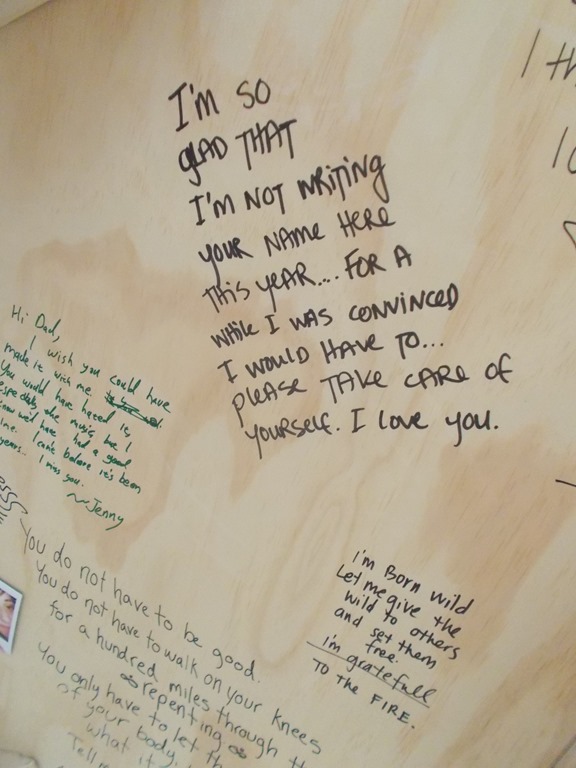 I'M SO
GLAD THAT
I'M NOT WRITING
YOUR NAME HERE
THIS YEAR.... FOR A
WHILE I WAS CONVINCED
I WOULD HAVE TO...
PLEASE TAKE CARE OF
YOURSELF. I LOVE YOU.
Hi Dad,
I wish you could have
made it with me.
You would have hated it,
especially the music, but I
know we'd have had a good
time. I can't believe it's been
years... I miss you.
~Jenny
You do not have to be good.
You do not have to walk on your knees
for a hundred miles through th
repenting
You only have to let th
of your body
what it
Tell m
I'm Born wild
Let me give the
wild to others
and set them
free.
I'm gratefull
TO THE FIRE.
I th